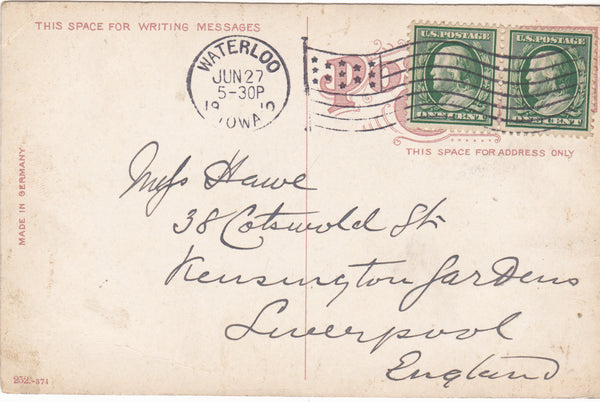 THIS SPACE FOR WRITING MESSAGES
WATERLOO
JUN 27
5-30P
IOWA
U.S. POSTAGE
ONE CENT
U.S. POSTAGE
ONE CENT
THIS SPACE FOR ADDRESS ONLY
MADE IN GERMANY
Miss Hawe
38 Cotswold St.
Kensington Gardens
Liverpool
England